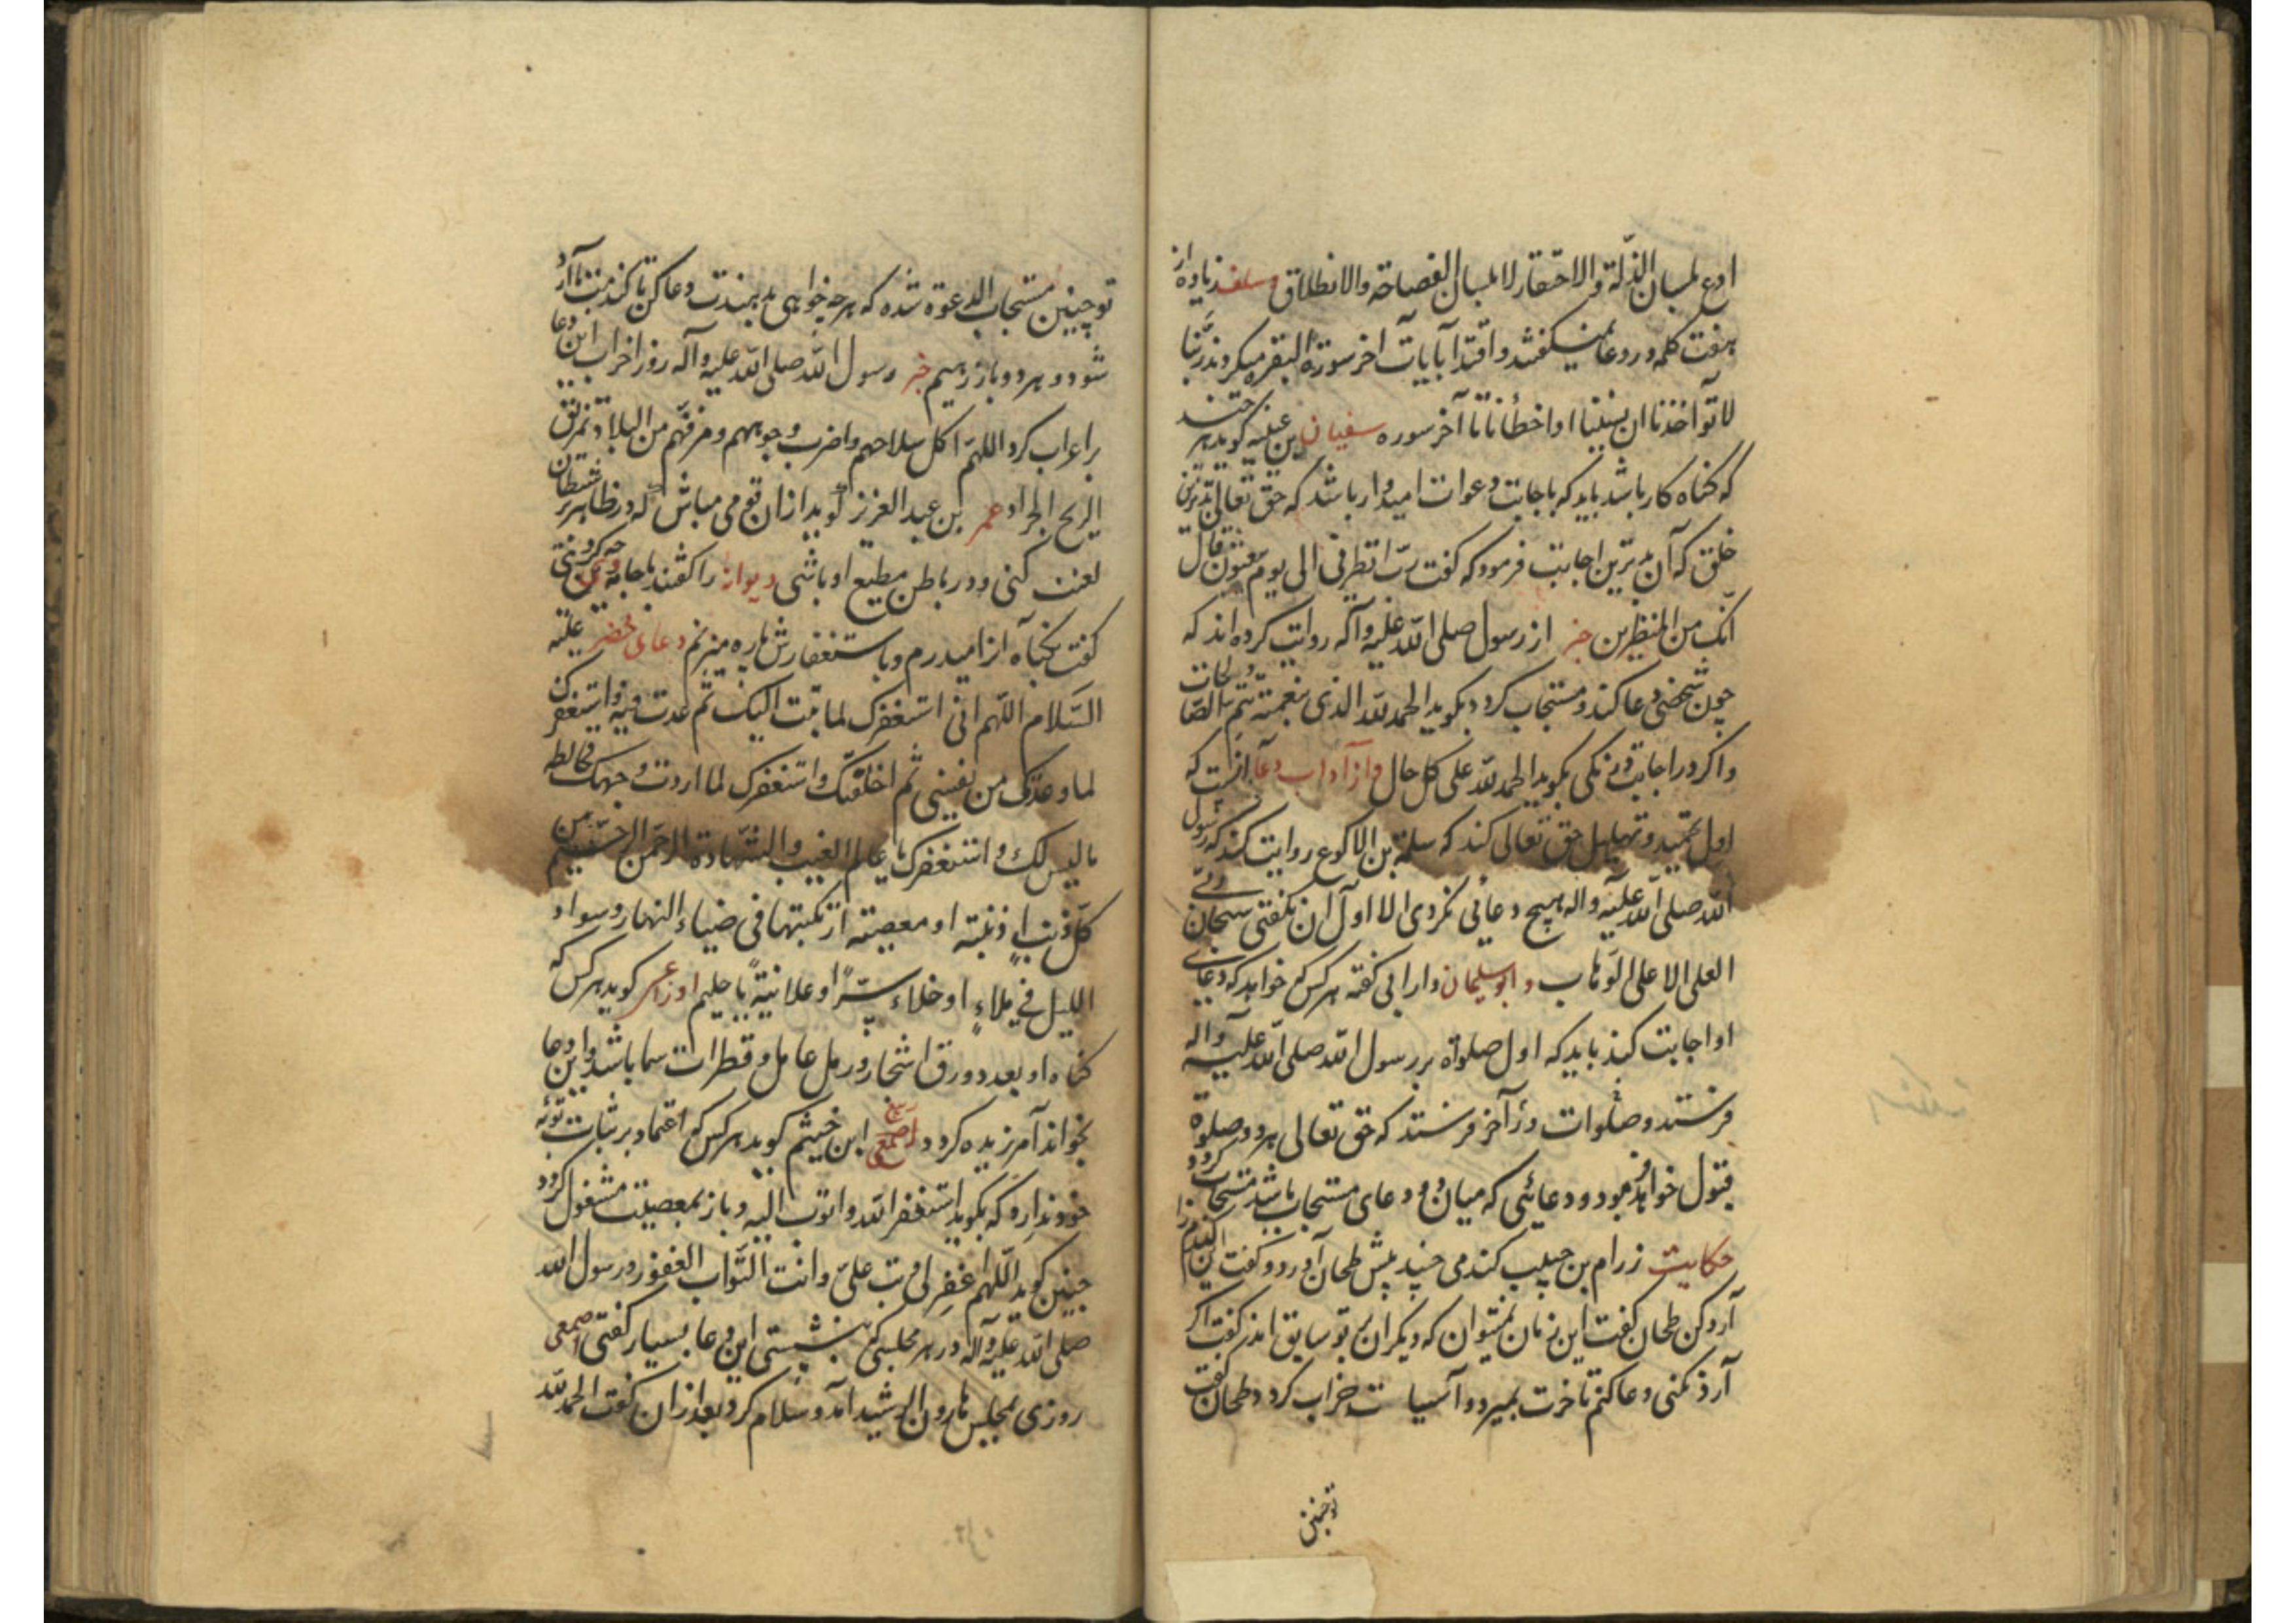 ادع بلسان الذلة والاحتقار لا بلسان الفصاحة والانطلاق وسلف زیاده از
هفت کلمه در دعا نمیگفتند و اقتدا بآیات آخر سورة البقره میکردند ربنا
لا تؤاخذنا ان نسینا او اخطأنا تا آخر سوره سفیان بن عیینه گوید هر چند
که گناه کار باشد باید که باجابت دعوات امیدوار باشد که حق تعالی بدترین
خلق که آن بدترین اجابت فرمود که گفت رب انظرنی الی یوم یبعثون قال
انک من المنظرین خبر از رسول صلی الله علیه وآله روایت کرده اند که
چون شخصی دعا کند و مستجاب گردد بگوید الحمد لله الذی بنعمته تتم الصالحات
و اگر در اجابت درنگی بگوید الحمد لله علی کل حال و از آداب دعا آنست که
اول تحمید و تهلیل حق تعالی کند که سلمة بن الاکوع روایت کند که رسول
الله صلی الله علیه واله هیچ دعائی نکردی الا اول آن بگفتی سبحان ربی
العلی الاعلی الوهاب و ابو سلیمان دارانی گفته هر کس که خواهد که دعای
او اجابت کند باید که اول صلوة بر رسول الله صلی الله علیه واله
فرستد و صلوات در آخر فرستد که حق تعالی هر دو صلوة
قبول خواهد فرمود و دعائی که میان دو دعای مستجاب باشد مستجاب گردد
حکایت زرام بن حبیب گندمی چند پیش طحان آورد و گفت این گندم را
آرد کن طحان گفت این زمان نمیتوان که دیگران بر تو سابق اند گفت اگر
آرد نکنی دعا کنم تا خرت بمیرد و آسیات خراب گردد طحان گفت
تو چنین
تو چنین مستجاب الدعوة شده که هر چه خواهی بدهندت دعا کن تا گندمت آرد
شود و هر دو باز رهیم خبر رسول الله صلی الله علیه وآله روز احزاب این دعا
بر اعراب کرد اللهم اکل سلاحهم واضرب وجوههم ومزقهم من البلاد تمزیق
الریح الجراد عمر بن عبد العزیز گوید از آن قومی مباش که در ظاهر بر شیطان
لعنت کنی و در باطن مطیع او باشی دیوانه را گفتند با جامه چه کردی
گفت بگناه از امید درم و باستغفارش پاره میزنم دعای خضر علیه
السلام اللهم انی استغفرک لما تبت الیک ثم عدت فیه واستغفرک
لما وعدتک من نفسی ثم اخلفتک واستغفرک لما اردت وجهک فخالطه
ما لیس لک واستغفرک یا عالم الغیب والشهادة الرحمن الرحیم من
کل ذنب اذنبته او معصیته ارتکبتها فی ضیاء النهار وسواد
اللیل فی ملاء او خلاء سرا او علانیة یا حلیم اوزاعی گوید هر کس که
گناه او بعدد ورق اشجار و رمل عامل و قطرات سما باشد و این دعا
بخواند آمرزیده گردد ربیع ابن خیثم گوید هر کس که اعتماد بر ثبات توبه
خود ندارد که بگوید استغفر الله واتوب الیه و باز بمعصیت مشغول گردد
چنین گوید اللهم اغفر لی وتب علی وانت التواب الغفور و رسول الله
صلی الله علیه وآله در هر مجلسی که بنشستی این دعا بسیار گفتی اصمعی
روزی بمجلس هارون الرشید آمد و سلام کرد بعد از آن گفت الحمد لله